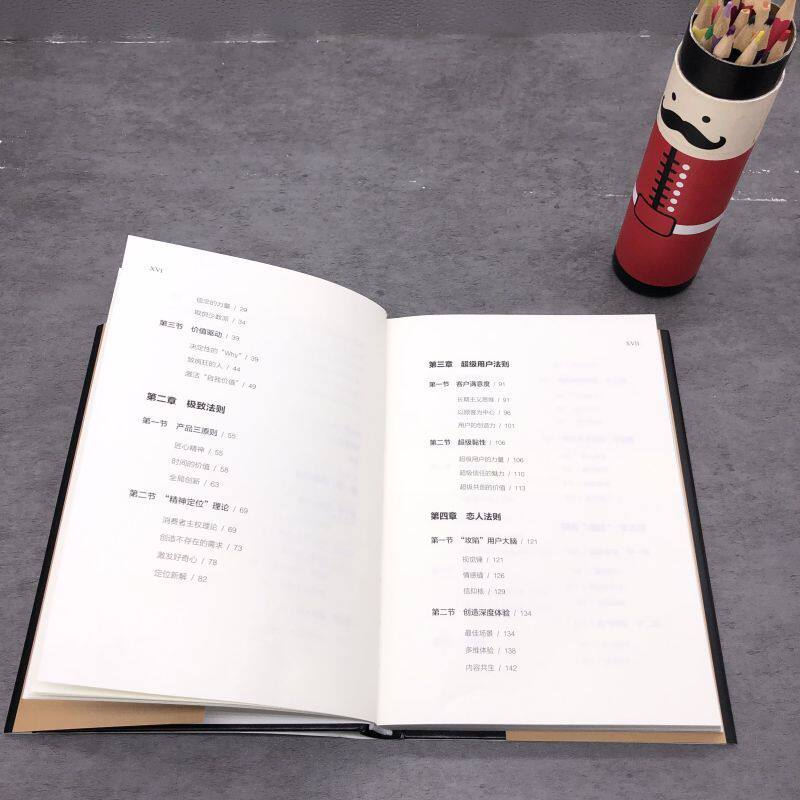 XVI
信念的力量 / 29
取悦少数派 / 34
第三节 价值驱动 / 39
决定性的“Why” / 39
致疯狂的人 / 44
激活“自我价值” / 49
第二章 极致法则
第一节 产品三原则 / 55
匠心精神 / 55
时间的价值 / 58
全局创新 / 63
第二节 “精神定位”理论 / 69
消费者主权理论 / 69
创造不存在的需求 / 73
激发好奇心 / 78
定位新解 / 82
XVII
第三章 超级用户法则
第一节 客户满意度 / 91
长期主义思维 / 91
以顾客为中心 / 96
用户的创造力 / 101
第二节 超级黏性 / 106
超级用户的力量 / 106
超级信任的魅力 / 110
超级共创的价值 / 113
第四章 恋人法则
第一节 “攻陷”用户大脑 / 121
视觉锤 / 121
情感锚 / 126
信仰核 / 129
第二节 创造深度体验 / 134
最佳场景 / 134
多维体验 / 138
内容共生 / 142